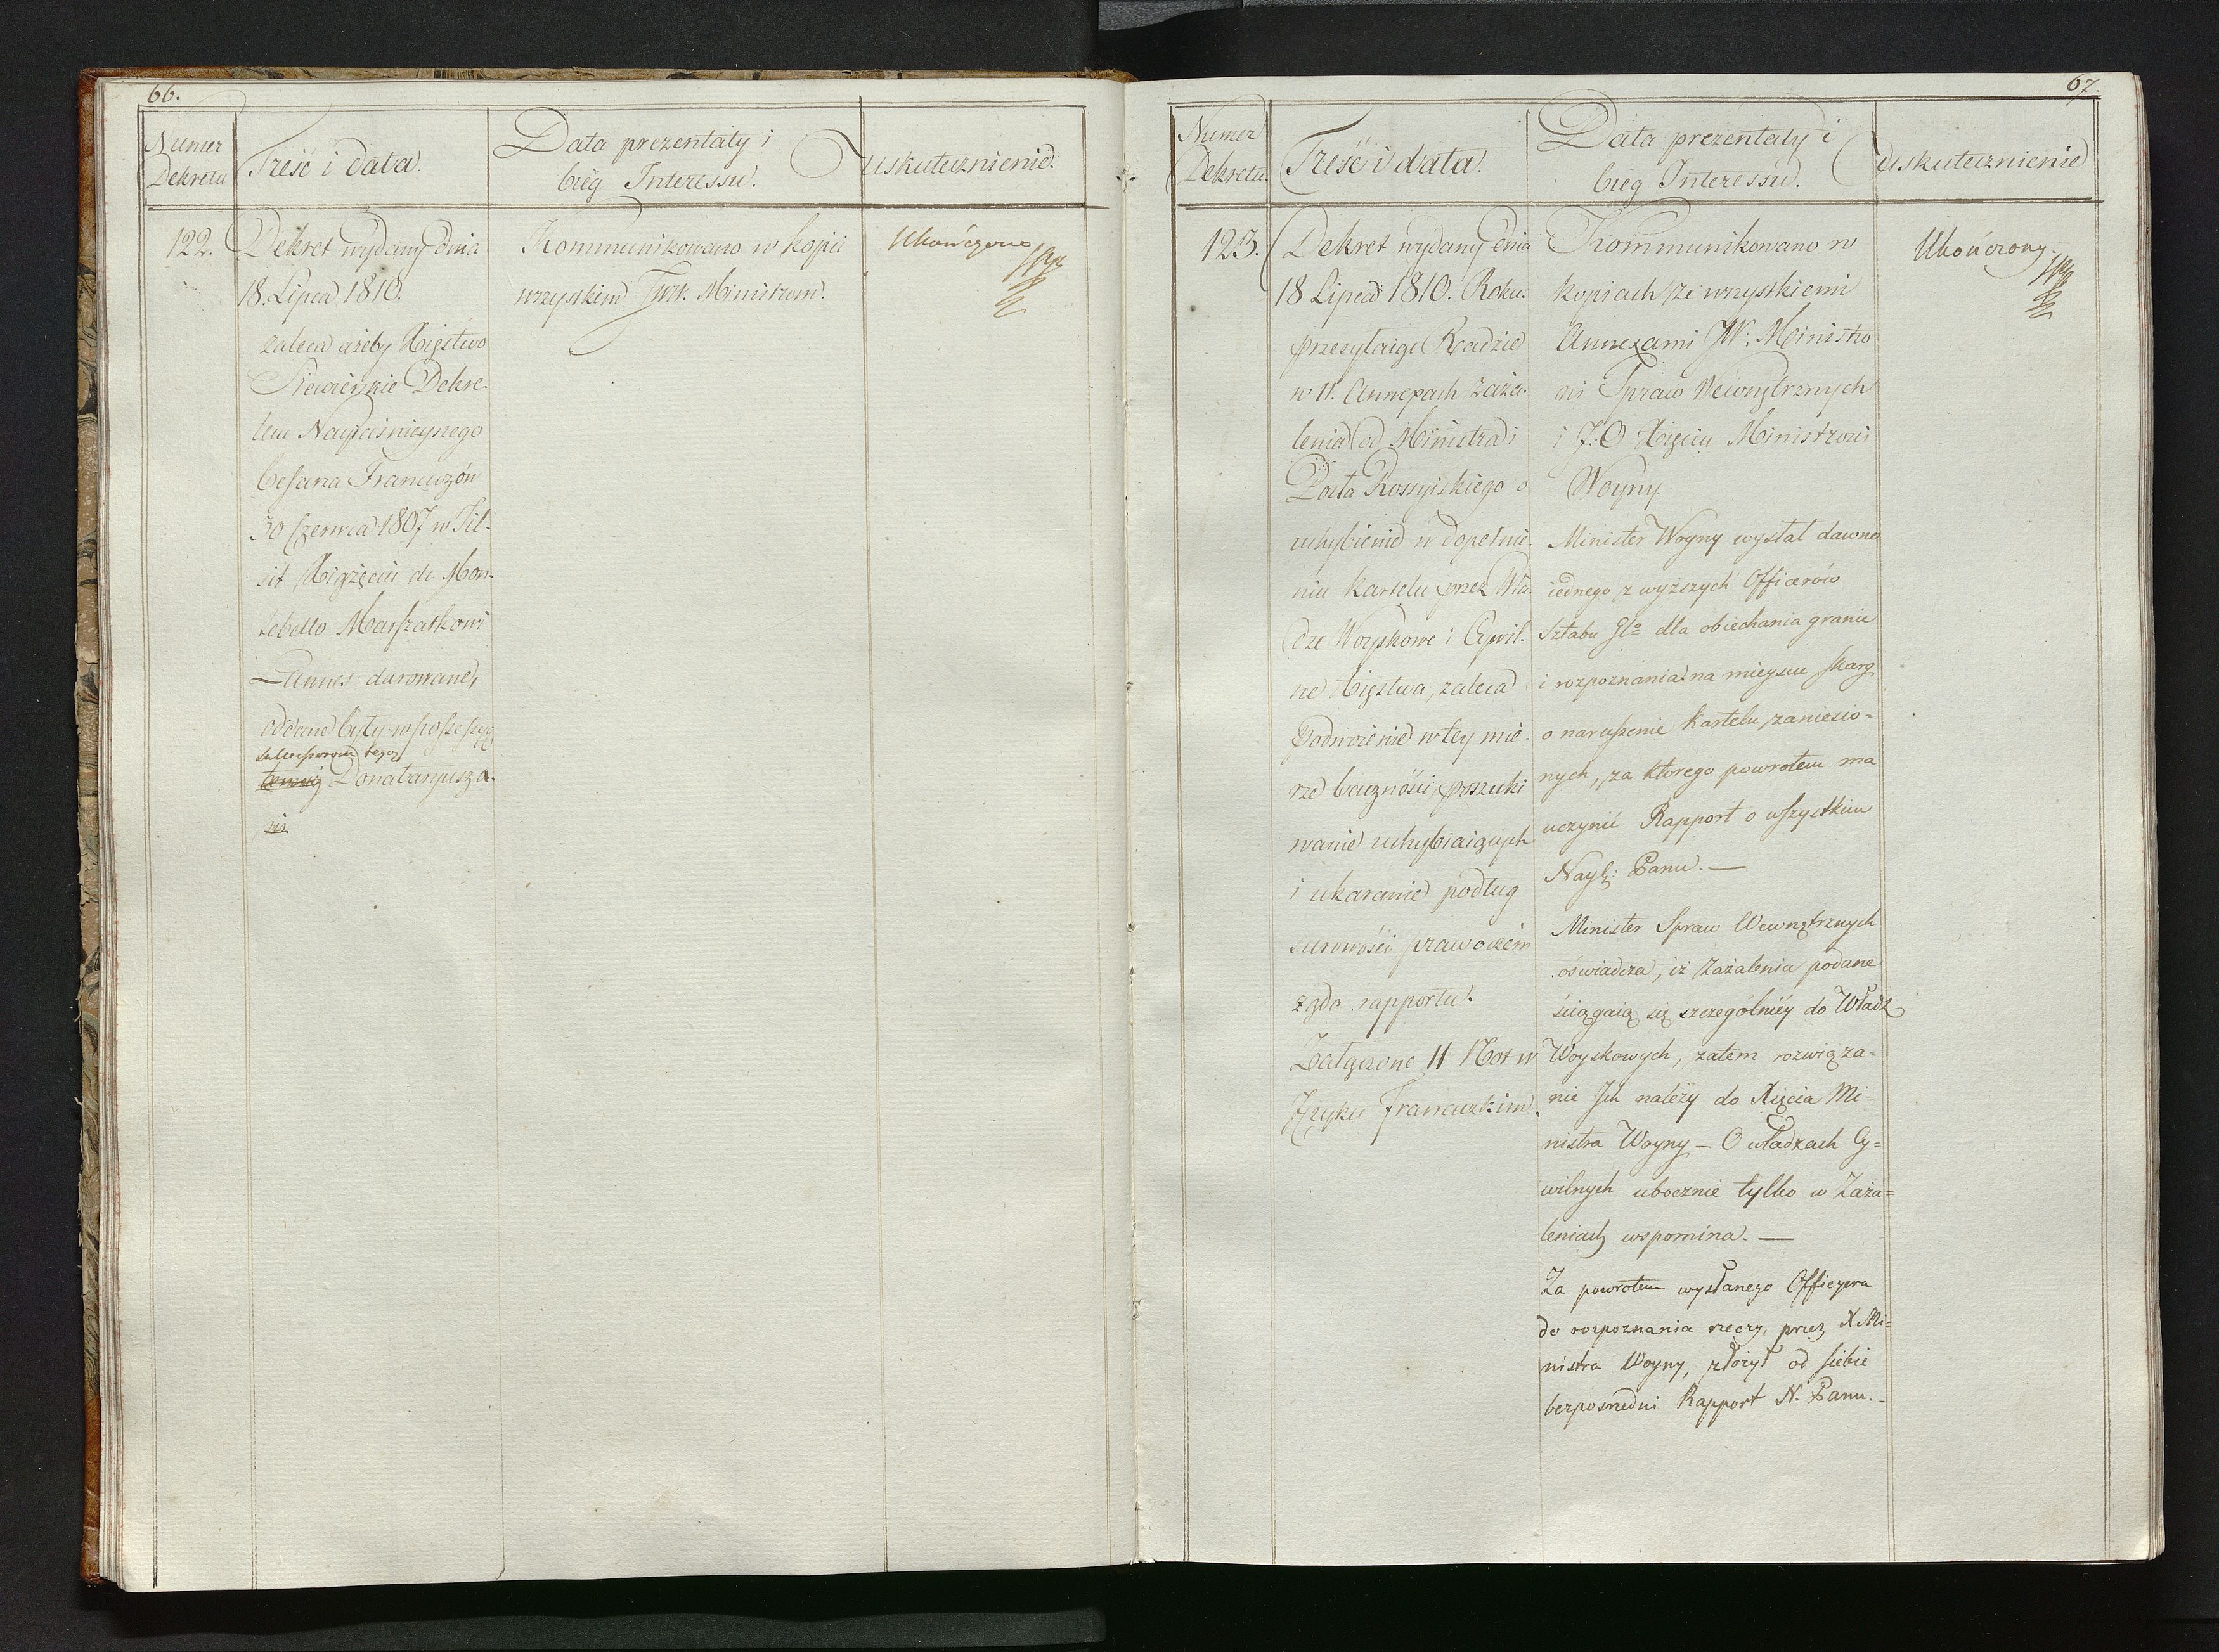 66.
Numer Dekretu
Treść i data.
Data prezentaty i bieg Interessu.
uskutecznienie.
122.
Dekret wydany dnia
18. Lipca 1810.
zaleca ażeby Xięstwo
Siewierskie Dekre-
tem Nayjaśnieyszego
Cesarza Francuzów
30 Czerwca 1807 w Til-
sit Xiążęciu de Mon-
tebello Marszałkowi
Lannes darowane,
oddane były w possessyą
sukcessorom tegoż
Donataryusza.
Kommunikowano w kopii
wszystkim JWW. Ministrom.
Ukończono
67.
Numer Dekretu.
Treść i data.
Data prezentaty i bieg Interessu.
uskutecznienie
123.
Dekret wydany dnia
18 Lipca 1810. Roku.
przesyłaiąc Radzie
w 11. Annexach zaża-
lenia od Ministra i
Posła Rossyiskiego o
uchybienie w dopełnie-
niu Kartelu przez Wła-
dze Woyskowe i Cywil-
ne Xięstwa, zaleca
Podwoienie w tey mie-
rze baczności, poszuki
wanie uchybiaiących
i ukaranie podług
surowości praw o czém
żąda rapportu.
Załączone 11 Not w
Języku Francuzkim.
Kommunikowano w
kopiach ze wszystkiemi
Annexami JW. Ministro
wi Spraw Wewnętrznych
i J. O Xięciu Ministrowi
Woyny
Minister Woyny wysłał dawno
iednego z wyższych Officerów
Sztabu Glo dla obiechania granic
i rozpoznania na mieyscu skarg
o naruszenie Kartelu, zaniesio-
nych, za którego powrotem ma
uczynić Rapport o wszystkiem
Nayj: Panu. —
Minister Spraw Wewnętrznych
oświadcza, iż Zażalenia podane
ściągaią się szczegolniéy do Władz
Woyskowych, zatem rozwiąza-
nie Ich należy do Xięcia Mi=
nistra Woyny — O władzach Cy=
wilnych ubocznie tylko w Zaża=
leniach wspomina. —
Za powrotem wysłanego Officyera
do rozpoznania rzeczy, przez X Mi=
nistra Woyny, złożył od siebie
bezpośredni Rapport N. Panu. -
Ukończony.